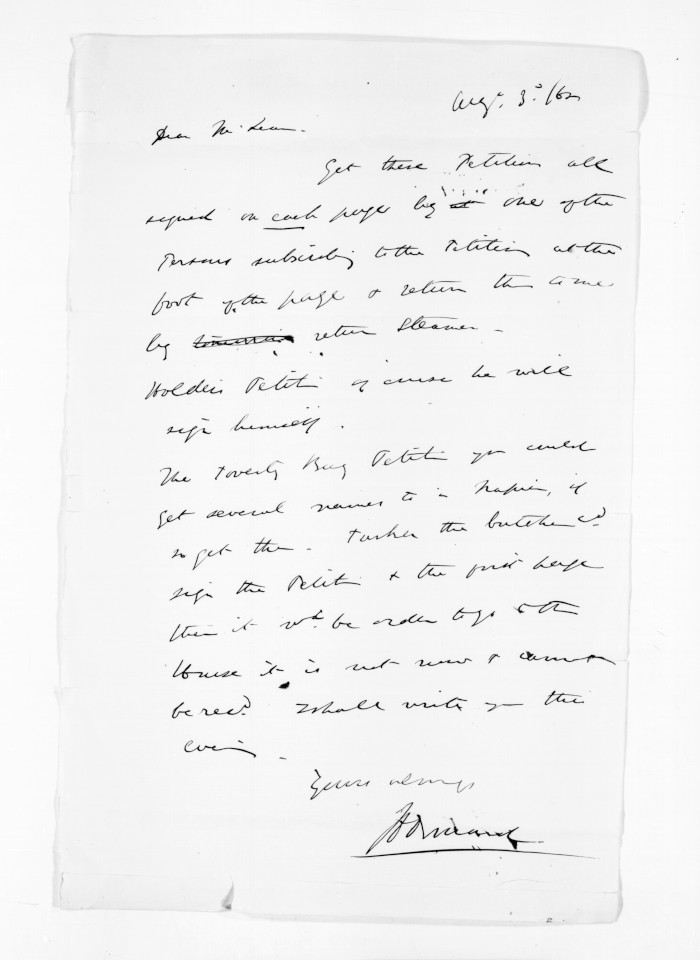 Augt. 3d. /62
Dear McLean.
Get these Petitions all
signed on each page by at one of the
Persons subscribing to the Petition at the
foot of the page & return the same
by return Steamer -
Holders Petition of course he will
sign himself.
The Poverty Bay Petition you could
get several names to in Napier, if
so get them. Tasker the butcher cd.
sign the Petition & the first page
then it wd. be order to go to the
House it is not now & cannot
be recd. I shall write you this
evening -
Yours always